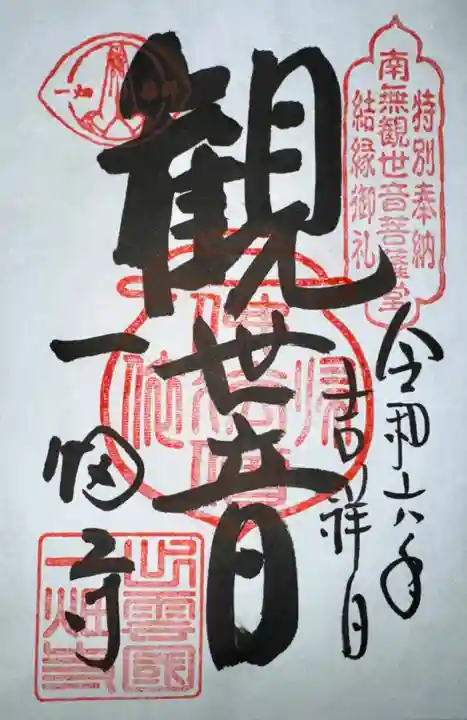 特別奉納
南無観世音菩薩堂
結縁御礼
令和六年
吉祥日
観世音
一畑
一畑寺
出雲國
一畑寺